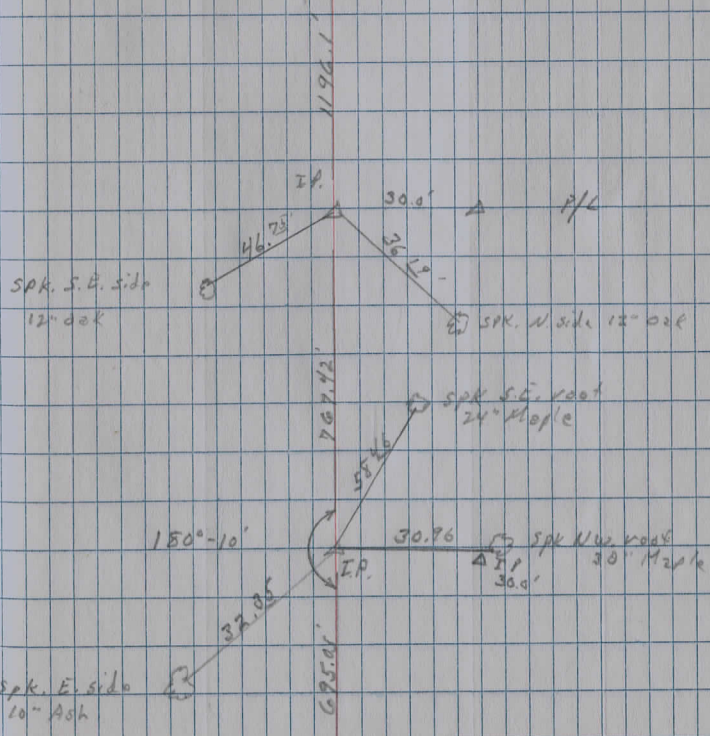 1196.1'
I.P.
30.0'
P/L
46.75'
36.19
Spk. S.E. side
12" oak
Spk. N side 12" oak
767.42'
Spk S.E. root
24" Maple
55.46
180°-10'
30.96
Spk NW. root
30" Maple
I.P.
I.P.
30.0'
32.05
695.05'
Spk. E. side
10" Ash